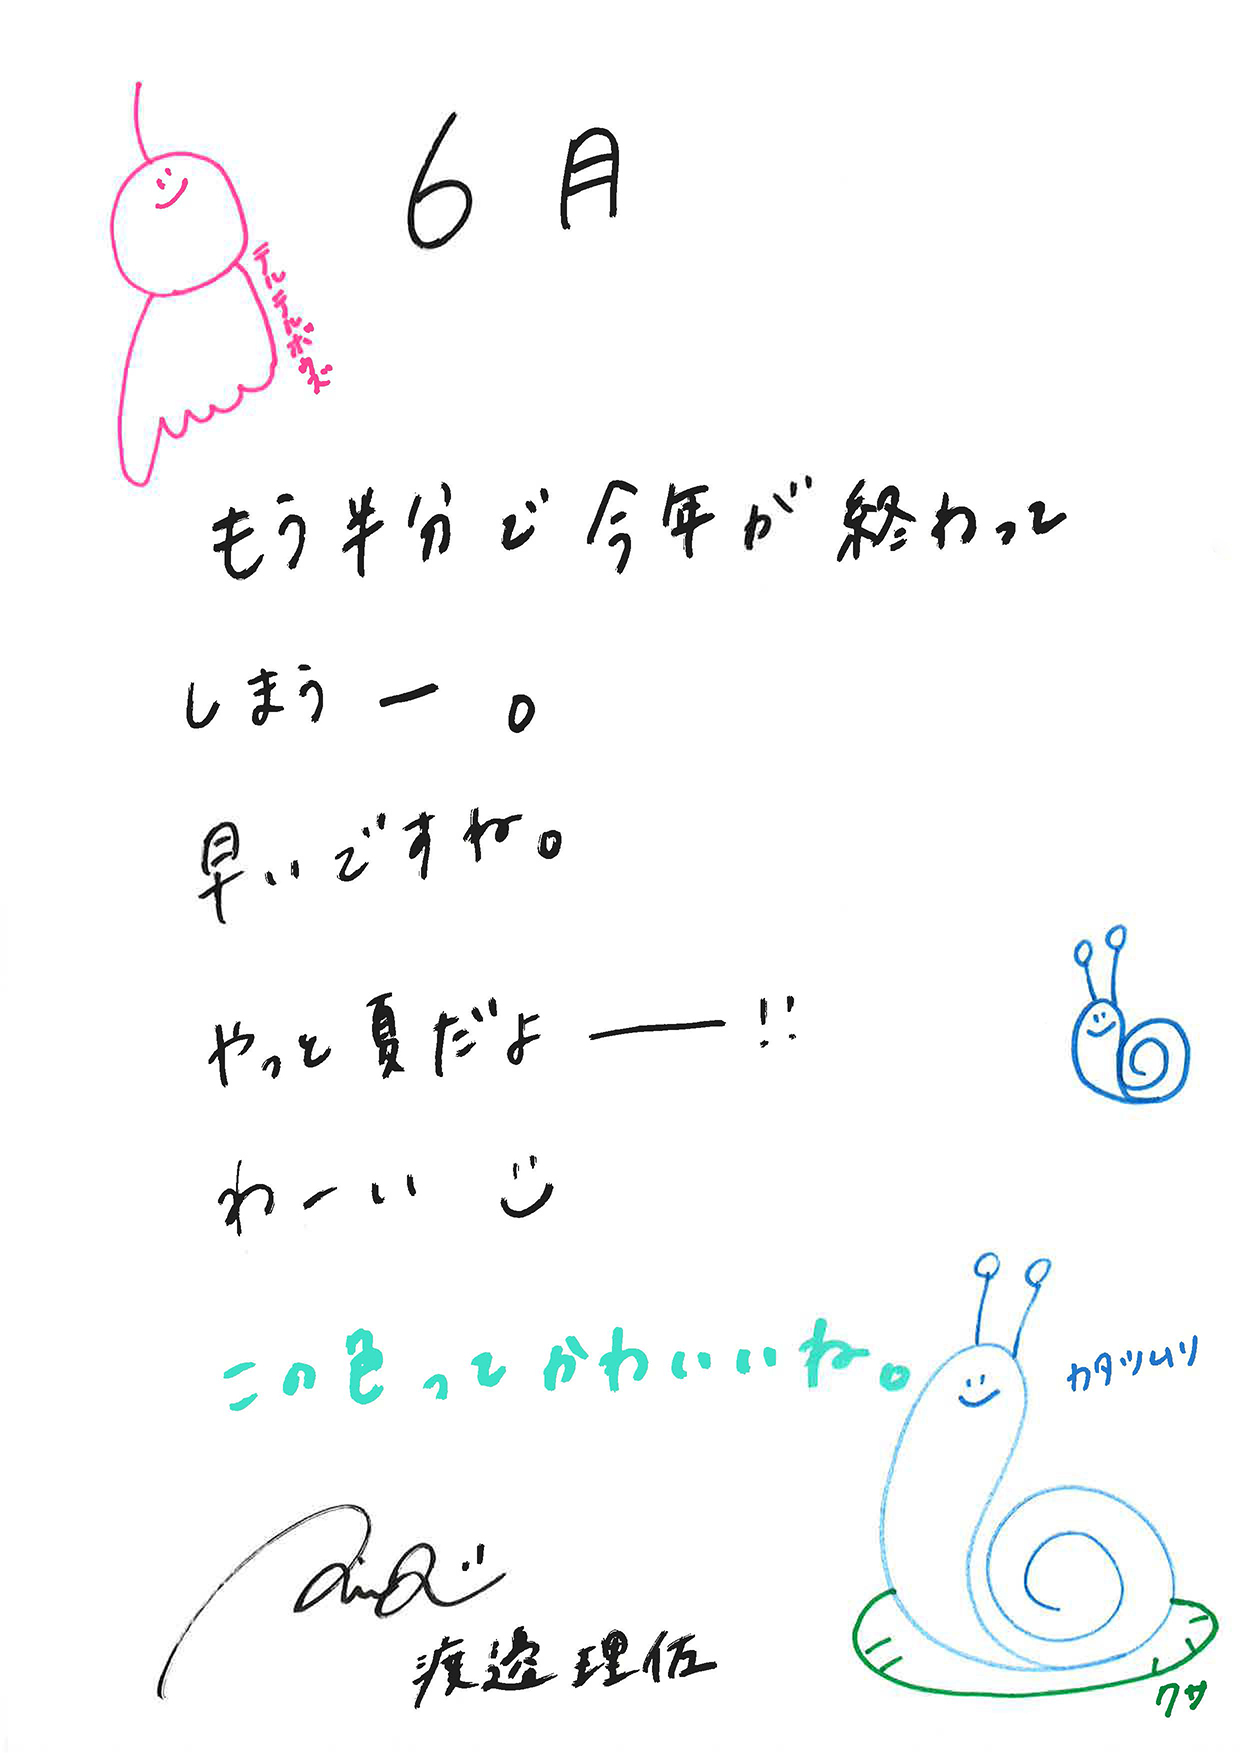 6月
テルテルボウズ
もう半分で今年が終わって
しまうー。
早いですね。
やっと夏だよー!!
わーい
この色ってかわいいね。
カタツムリ
渡邉理佐
クサ